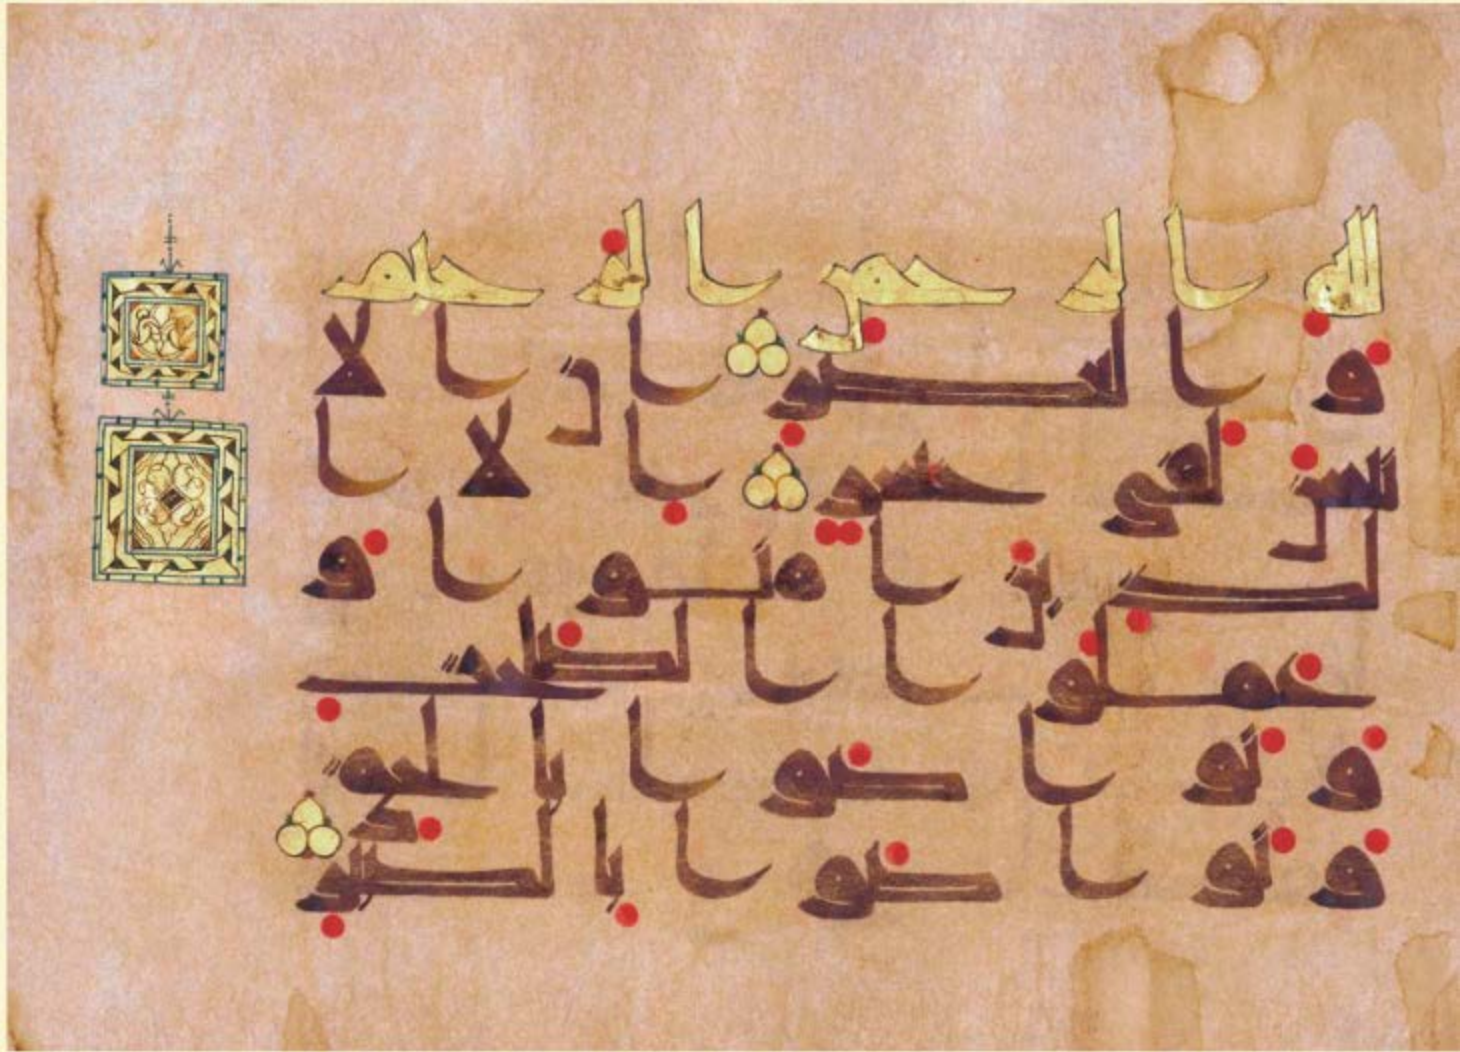 الله الرحمن الرحيم
والعصر ان الا
نسن لفي خسر الا ا
لذين امنوا و
عملوا الصلحت
وتواصوا بالحق
وتواصوا بالصبر